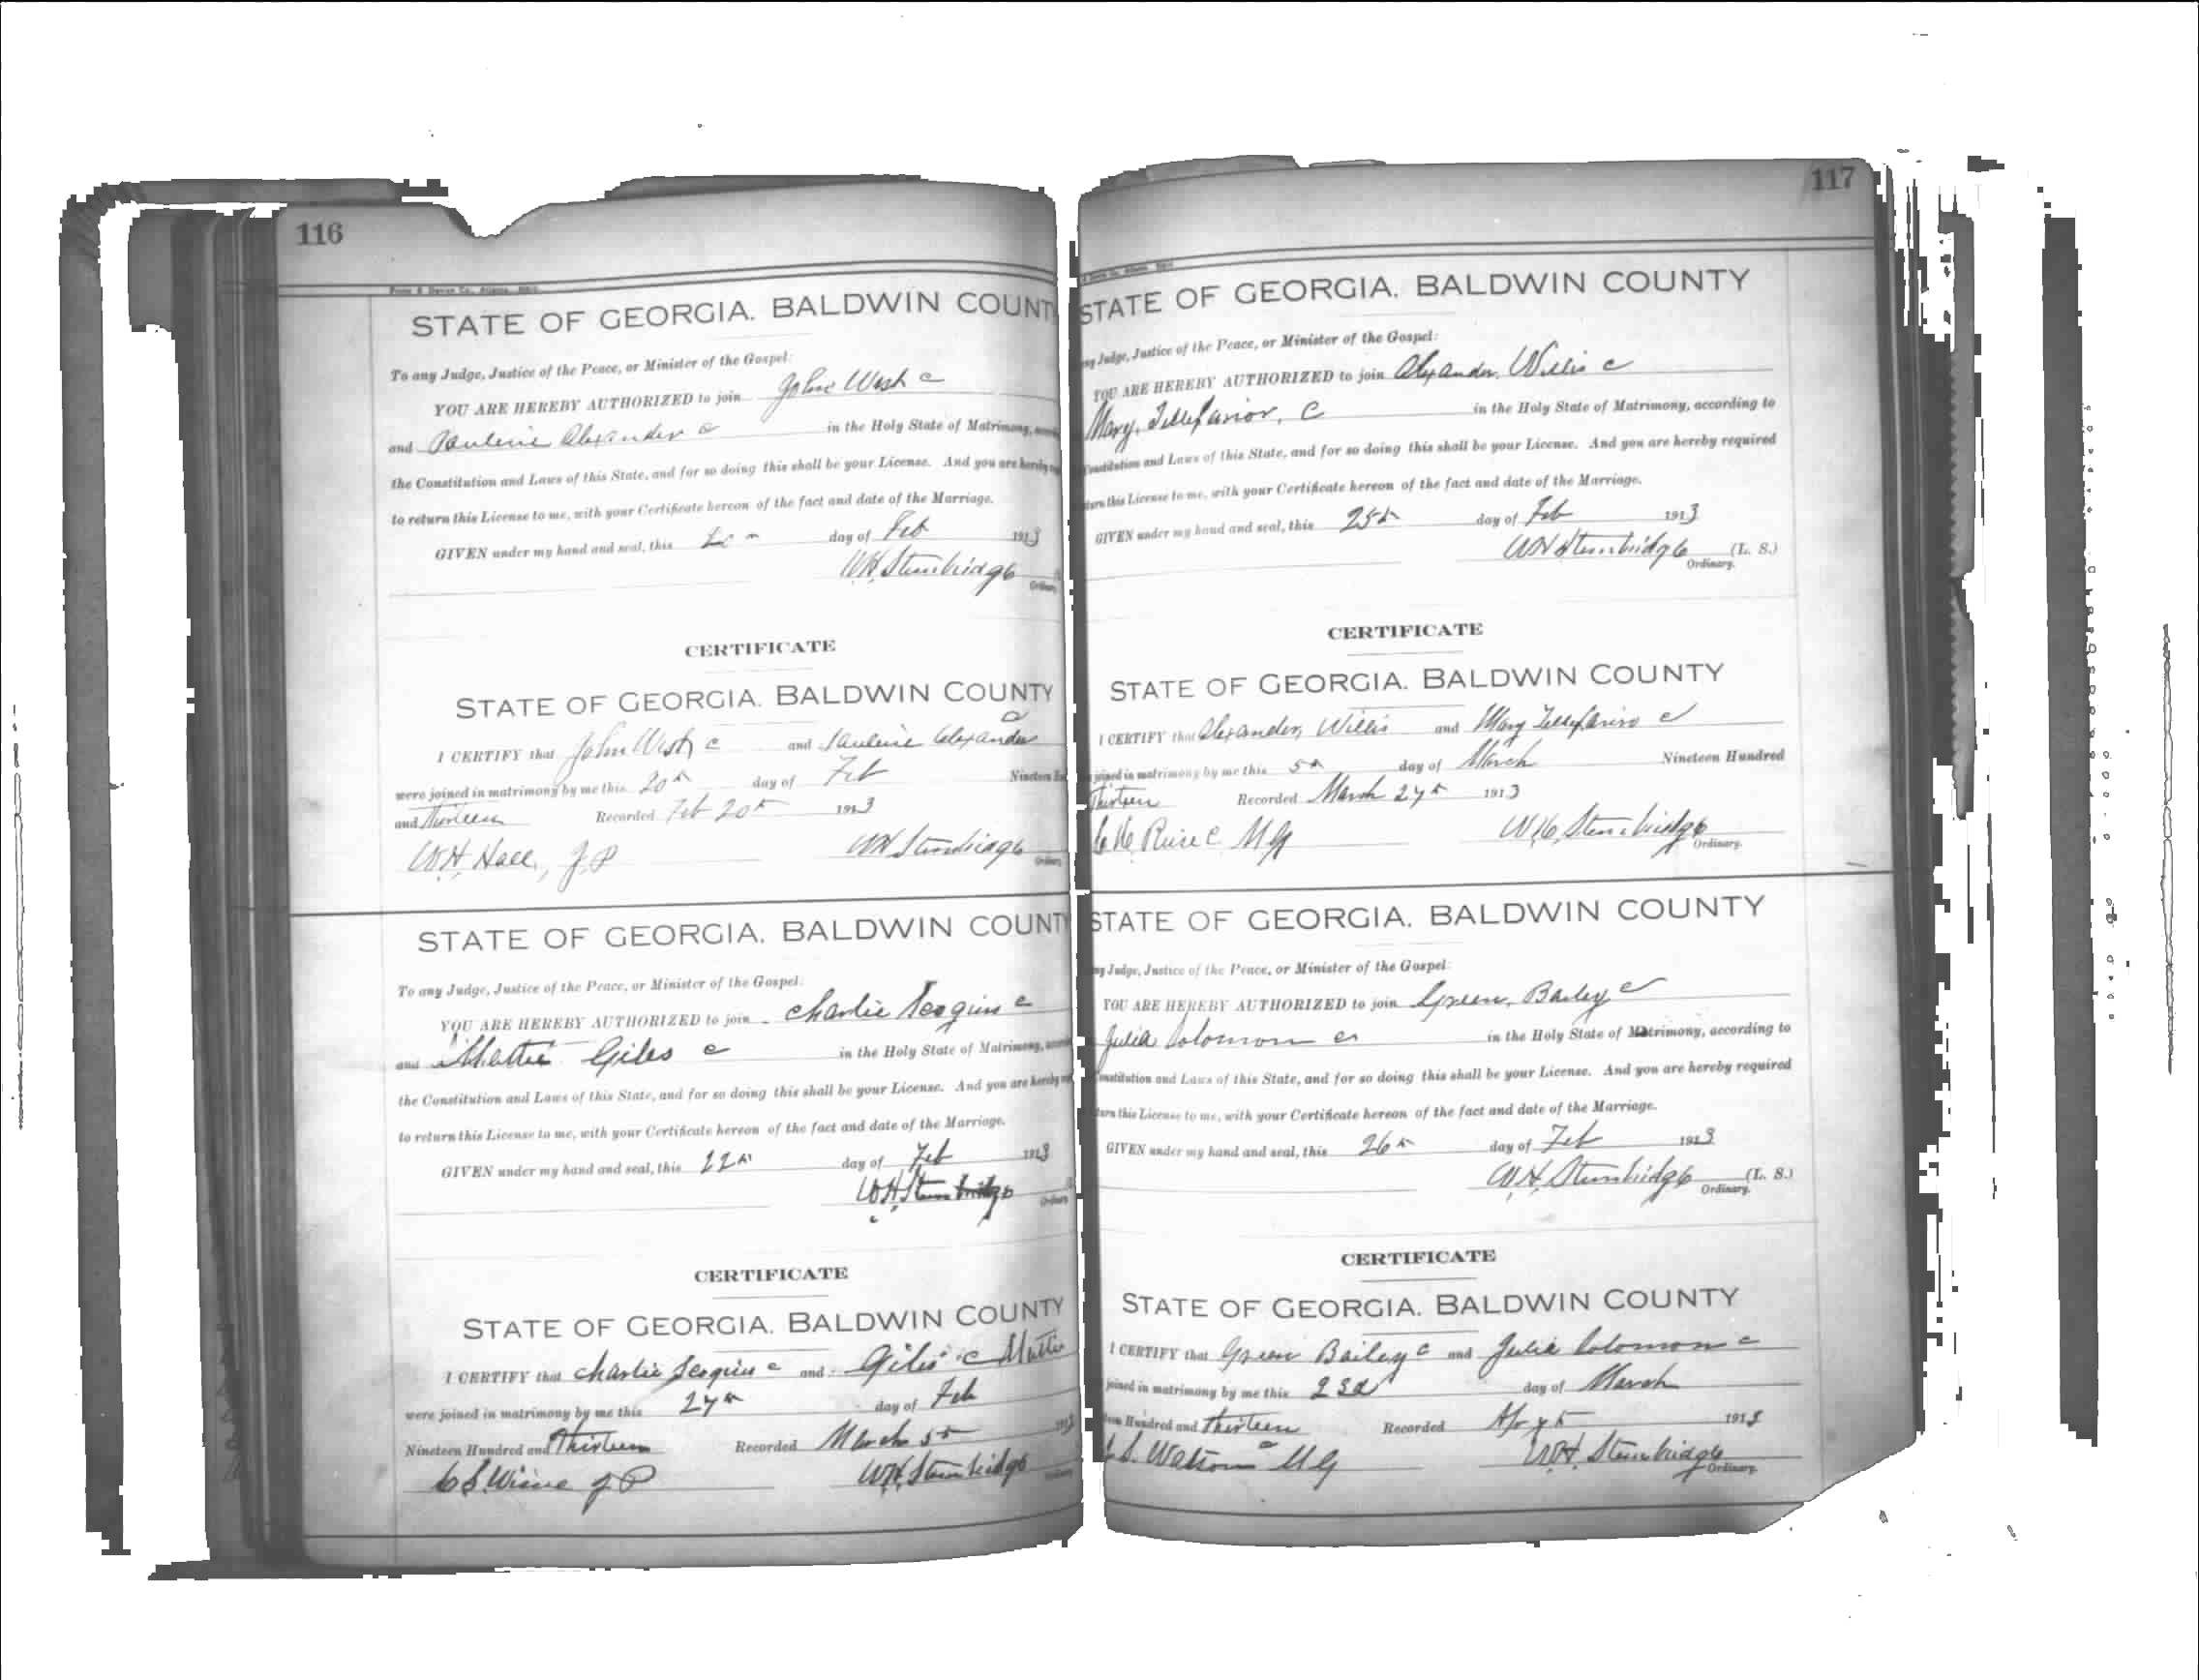 116
STATE OF GEORGIA. BALDWIN COUNT
To any Judge, Justice of the Peace, or Minister of the Gospel:
YOU ARE HEREBY AUTHORIZED to join John West c
and Pauleine Alexander c in the Holy State of Matrimony,
the Constitution and Laws of this State, and for so doing this shall be your License. And you are hereby
to return this License to me, with your Certificate hereon of the fact and date of the Marriage.
GIVEN under my hand and seal, this day of Feb 1913
W.H. Stembridge
Ordinary
CERTIFICATE
STATE OF GEORGIA. BALDWIN COUNTY
I CERTIFY that John West c and Pauleine Alexander c
were joined in matrimony by me this 20th day of Feb Nineteen
and Thirteen Recorded Feb 20th 1913
W.H. Hall, J.P W.H. Stembridge
Ordinary
STATE OF GEORGIA. BALDWIN COUNT
To any Judge, Justice of the Peace, or Minister of the Gospel:
YOU ARE HEREBY AUTHORIZED to join Charlie Scogins c
and Mattie Giles c in the Holy State of Matrimony,
the Constitution and Laws of this State, and for so doing this shall be your License. And you are hereby
to return this License to me, with your Certificate hereon of the fact and date of the Marriage.
GIVEN under my hand and seal, this 22nd day of Feb 1913
W.H. Stembridge
Ordinary
CERTIFICATE
STATE OF GEORGIA. BALDWIN COUNTY
I CERTIFY that Charlie Scogins c and Giles c Mattie
were joined in matrimony by me this 27th day of Feb
Nineteen Hundred and Thirteen Recorded March 5th 1913
J P W.H. Stembridge
117
STATE OF GEORGIA. BALDWIN COUNTY
ny Judge, Justice of the Peace, or Minister of the Gospel:
YOU ARE HEREBY AUTHORIZED to join Alexander, Willis c
Mary, c in the Holy State of Matrimony, according to
Constitution and Laws of this State, and for so doing this shall be your License. And you are hereby required
turn this License to me, with your Certificate hereon of the fact and date of the Marriage.
GIVEN under my hand and seal, this 25th day of Feb 1913
W.H. Stembridge (L. S.)
Ordinary.
CERTIFICATE
STATE OF GEORGIA. BALDWIN COUNTY
I CERTIFY that Alexander, Willis and Mary c
joined in matrimony by me this 5th day of March Nineteen Hundred
Thirteen Recorded March 27th 1913
M G W.H. Stembridge
Ordinary.
STATE OF GEORGIA. BALDWIN COUNTY
ny Judge, Justice of the Peace, or Minister of the Gospel:
YOU ARE HEREBY AUTHORIZED to join Green, Bailey c
Julia Solomon c in the Holy State of Matrimony, according to
Constitution and Laws of this State, and for so doing this shall be your License. And you are hereby required
turn this License to me, with your Certificate hereon of the fact and date of the Marriage.
GIVEN under my hand and seal, this 26th day of Feb 1913
W.H. Stembridge (L. S.)
Ordinary.
CERTIFICATE
STATE OF GEORGIA. BALDWIN COUNTY
I CERTIFY that Green Bailey c and Julia Solomon c
joined in matrimony by me this 23d day of March
teen Hundred and Thirteen Recorded 1913
S. Watson c M G W.H. Stembridge
Ordinary.